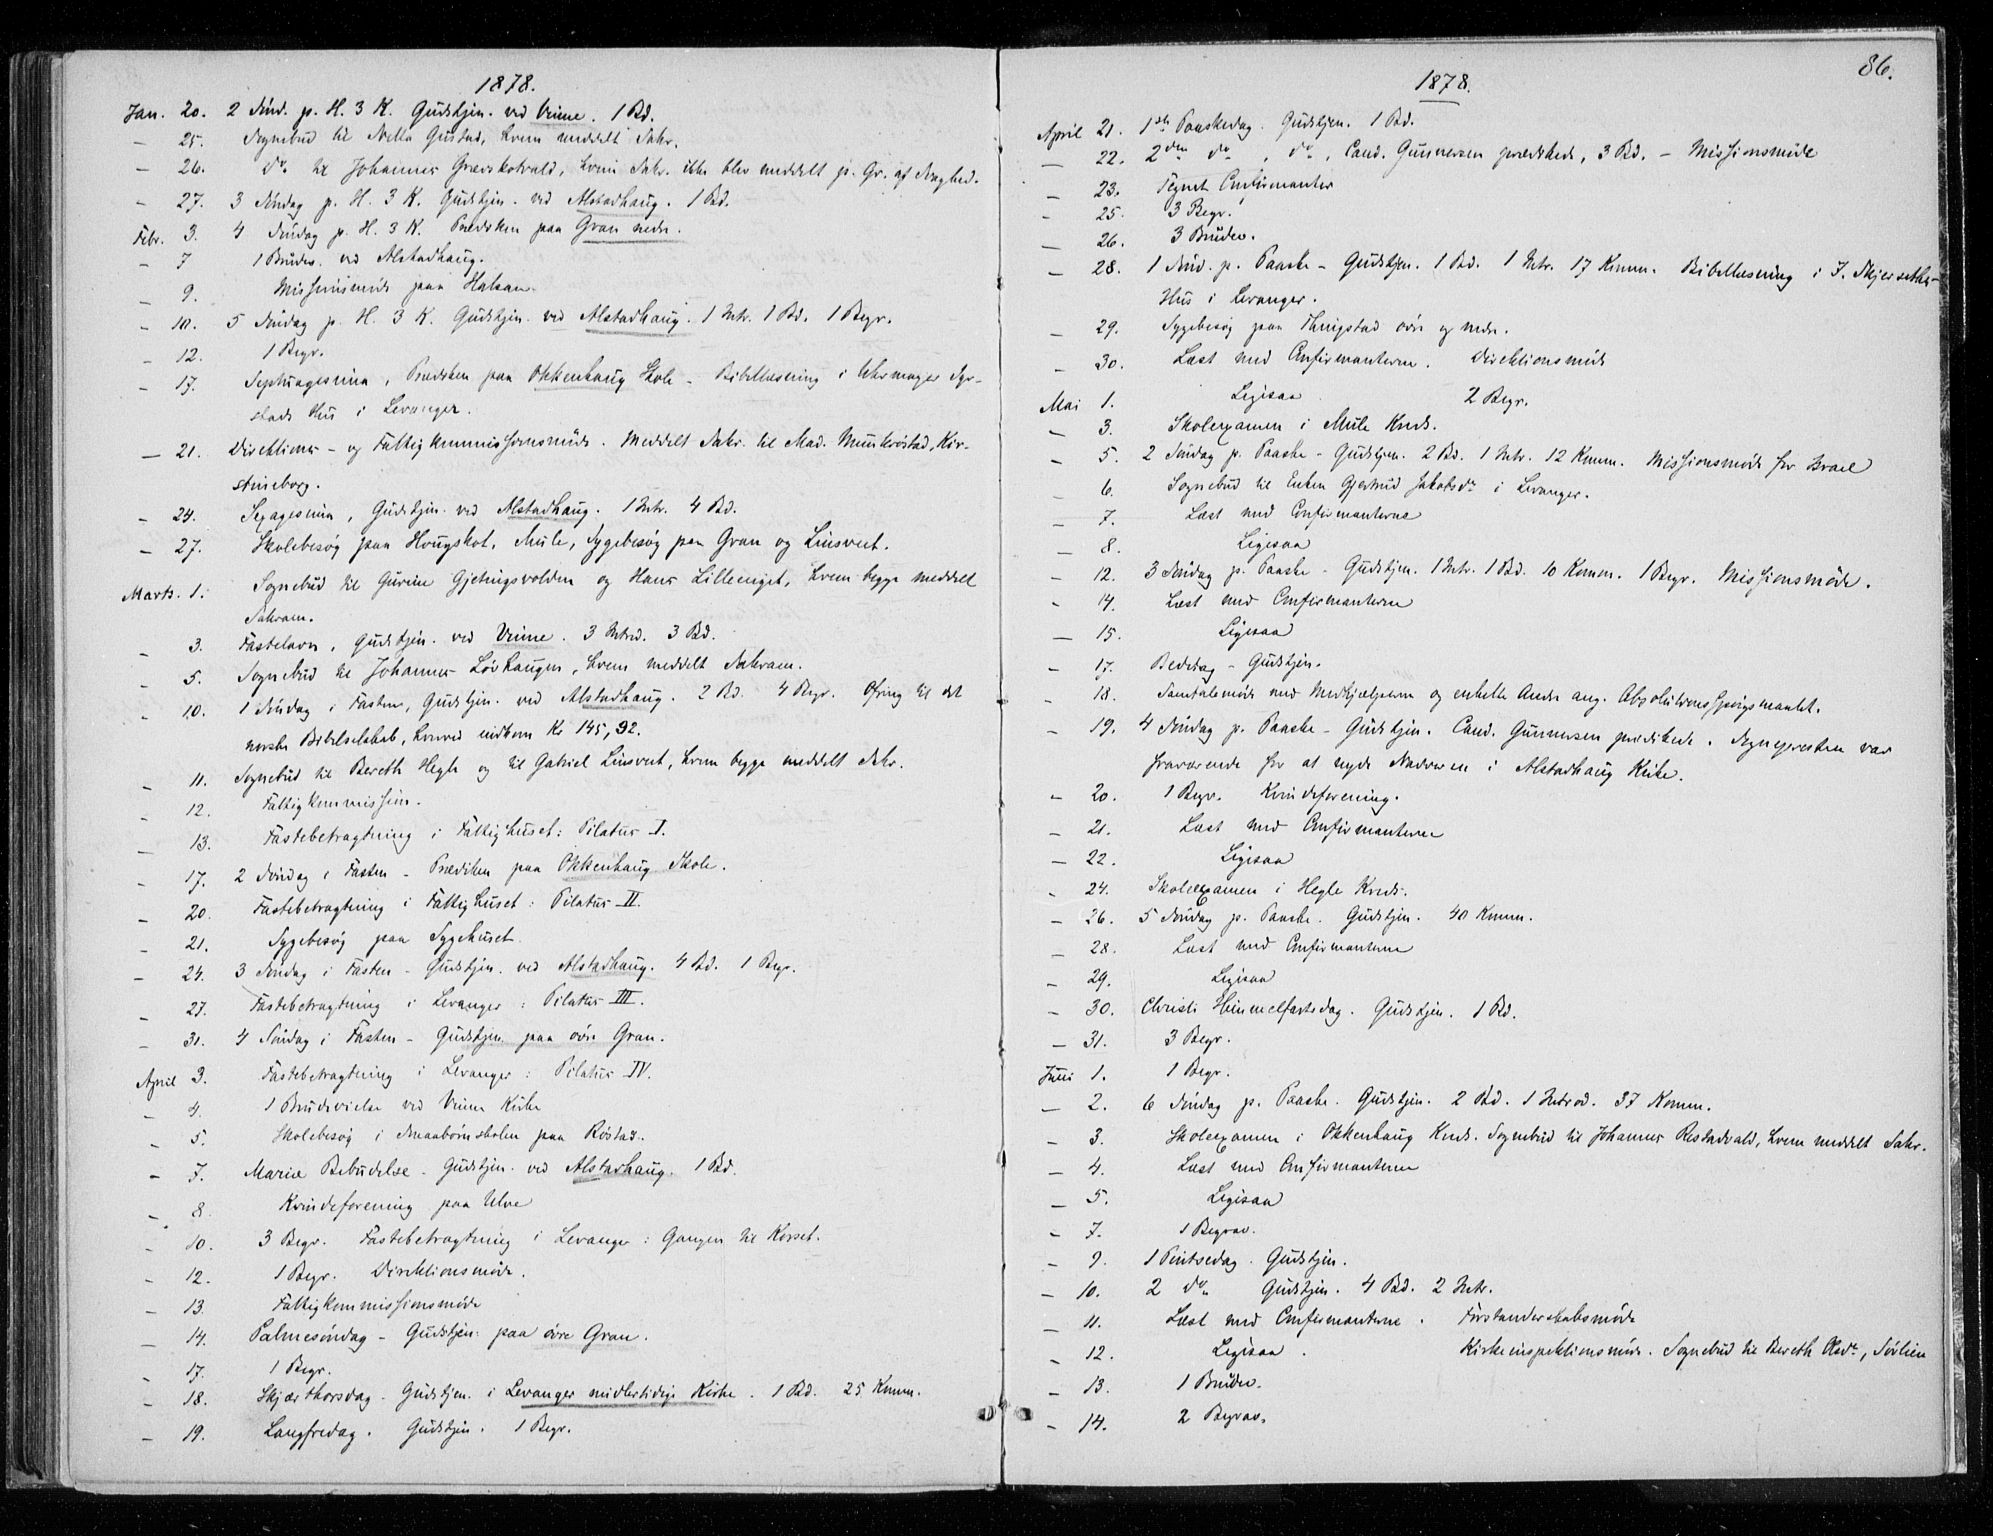 1878.
Jan. 20. 2 Sönd. p. H. 3 K. Gudstjen. ved Vinne. 1 Bd.
— 25. Sognebud til Gustad, hvem meddelt Sakr.
— 26. do. til Johannes, hvem Sakr. ikke blev meddelt p. Gr. af Svaghed.
— 27. 3 Söndag p. H. 3 K. Gudstjen. ved Alstadhaug. 1 Bd.
Febr. 3. 4 Söndag p. H. 3 K. Prædiken paa Gran nedre.
— 7 1 Brudev. ved Alstadhaug.
— 9. Missionsmöde paa Halsan.
— 10. 5 Söndag p. H. 3 K. Gudstjen. ved Alstadhaug. 1 Intr. 1 Bd. 1 Begr.
— 12. 1 Begr.
— 17. Septuagesima, Prædiken paa Okkenhaug Skole - Bibellæsning i Uhrmager
stads Hus i Levanger.
— 21. Direktions- og Fattigkommissionsmöde. Meddelt Sakr. til Mad. Munkröstad, Kir-
stineborg.
— 24. Sexagesima, Gudstjen. ved Alstadhaug. 1 Intr. 4 Bd.
— 27. Skolebesög paa Hougskot, Mule, Sygebesög paa Gran og Linsvert.
Marts. 1. Sognebud til Gurine Gjetingsvolden og Hans Lilleenget, hvem begge meddelt
Sakram.
— 3. Fastelavn, Gudstjen. ved Vinne. 3 Introd. 3 Bd.
— 5. Sognebud til Johannes Lövhaugen, hvem meddelt Sakram.
— 10. 1 Söndag i Fasten, Gudstjen. ved Alstadhaug. 2 Bd. 4 Begr. Ofring til det
norske Bibelselskab, hvorved indkom Kr 145,92.
— 11. Sognebud til Bereth Hegle og til Gabriel Linsvert, hvem begge meddelt Sakr.
— 12. Fattigkommission.
— 13. Fastebetragtning i Fattighuset: Pilatus I.
— 17. 2 Söndag i Fasten - Prædiken paa Okkenhaug Skole.
— 20. Fastebetragtning i Fattighuset: Pilatus II.
— 21. Sygebesög paa Sygehuset.
— 24. 3 Söndag i Fasten - Gudstjen. ved Alstadhaug. 4 Bd. 1 Begr.
— 27. Fastebetragtning i Levanger: Pilatus III.
— 31. 4 Söndag i Fasten - Gudstjen. paa övre Gran.
April 3. Fastebetragtning i Levanger: Pilatus IV.
— 4. 1 Brudevielse ved Vinne Kirke
— 5. Skolebesög i Smaabörnskolen paa Röstad.
— 7. Mariæ Bebudelse - Gudstjen. ved Alstadhaug. 1 Bd.
— 8. Kvindeforening paa Ulve
— 10. 3 Begr. Fastebetragtning i Levanger: Gangen til Korset.
— 12. 1 Begr. Direktionsmöde.
— 13. Fattigkommissionsmöde
— 14. Palmesöndag - Gudstjen. paa övre Gran.
— 17. 1 Begr.
— 18. Skjærthorsdag - Gudstjen. i Levanger midlertidige Kirke. 1 Bd. 25 Komm.
— 19. Langfredag. Gudstjen. 1 Begr.
86.
1878.
April 21. 1ste Paaskedag. Gudstjen. 1 Bd.
— 22. 2den do, do, Cand. Gunnersen prædikede, 3 Bd. - Missionsmöde
— 23. Tegnet Confirmanter
— 25. 3 Begr.
— 26. 3 Brudev.
— 28. 1 Sönd. p. Paaske - Gudstjen. 1 Bd. 1 Intr. 17 Komm. Bibellæsning i J. Skjersethes
Hus i Levanger.
— 29. Sygebesög paa Thingstad övre og nedre.
— 30. Læst med Confirmanterne. Direktionsmöde
Mai 1. Ligesaa 2 Begr.
— 3. Skoleexamen i Mule Kreds.
— 5. 2 Söndag p. Paaske - Gudstjen. 2 Bd. 1 Intr. 12 Komm. Missionsmöde for Israel
— 6. Sognebud til Enken Gjertrud Jakobsdr i Levanger.
— 7. Læst med Confirmanterne
— 8. Ligesaa
— 12. 3 Söndag p. Paaske - Gudstjen. 1 Intr. 1 Bd. 10 Komm. 1 Begr. Missionsmöde.
— 14. Læst med Confirmanterne
— 15. Ligesaa
— 17. Bededag - Gudstjen.
— 18. Samtalemöde med Medhjælperne og enkelte Andre ang. Absolutionsspörgsmaalet.
— 19. 4 Söndag p. Paaske - Gudstjen. Cand. Gunnersen prædikede. Sognepresten var
fraværende for at nyde Nadveren i Alstadhaug Kirke.
— 20. 1 Begr. Kvindeforening.
— 21. Læst med Confirmanterne
— 22. Ligesaa
— 24. Skoleexamen i Hegle Kreds.
— 26. 5 Söndag p. Paaske. Gudstjen. 40 Komm.
— 28. Læst med Confirmanterne
— 29. Ligesaa
— 30. Christi Himmelfartsdag. Gudstjen. 1 Bd.
— 31. 3 Begr.
Juni 1. 1 Begr.
— 2. 6 Söndag p. Paaske. Gudstjen. 2 Bd. 1 Introd. 37 Komm.
— 3. Skoleexamen i Okkenhaug Kreds. Sognebud til Johannes Restadvald, hvem meddelt Sakr.
— 4. Læst med Confirmanterne
— 5. Ligesaa
— 7. 1 Begrav.
— 9. 1 Pintsedag. Gudstjen.
— 10. 2 do Gudstjen. 4 Bd. 2 Intr.
— 11. Læst med Confirmanterne. Forstanderskabsmöde
— 12. Ligesaa. Kirkeinspektionsmöde. Sognebud til Bereth Olsdr, Sörlien
— 13. 1 Brudev.
— 14. 2 Begrav.